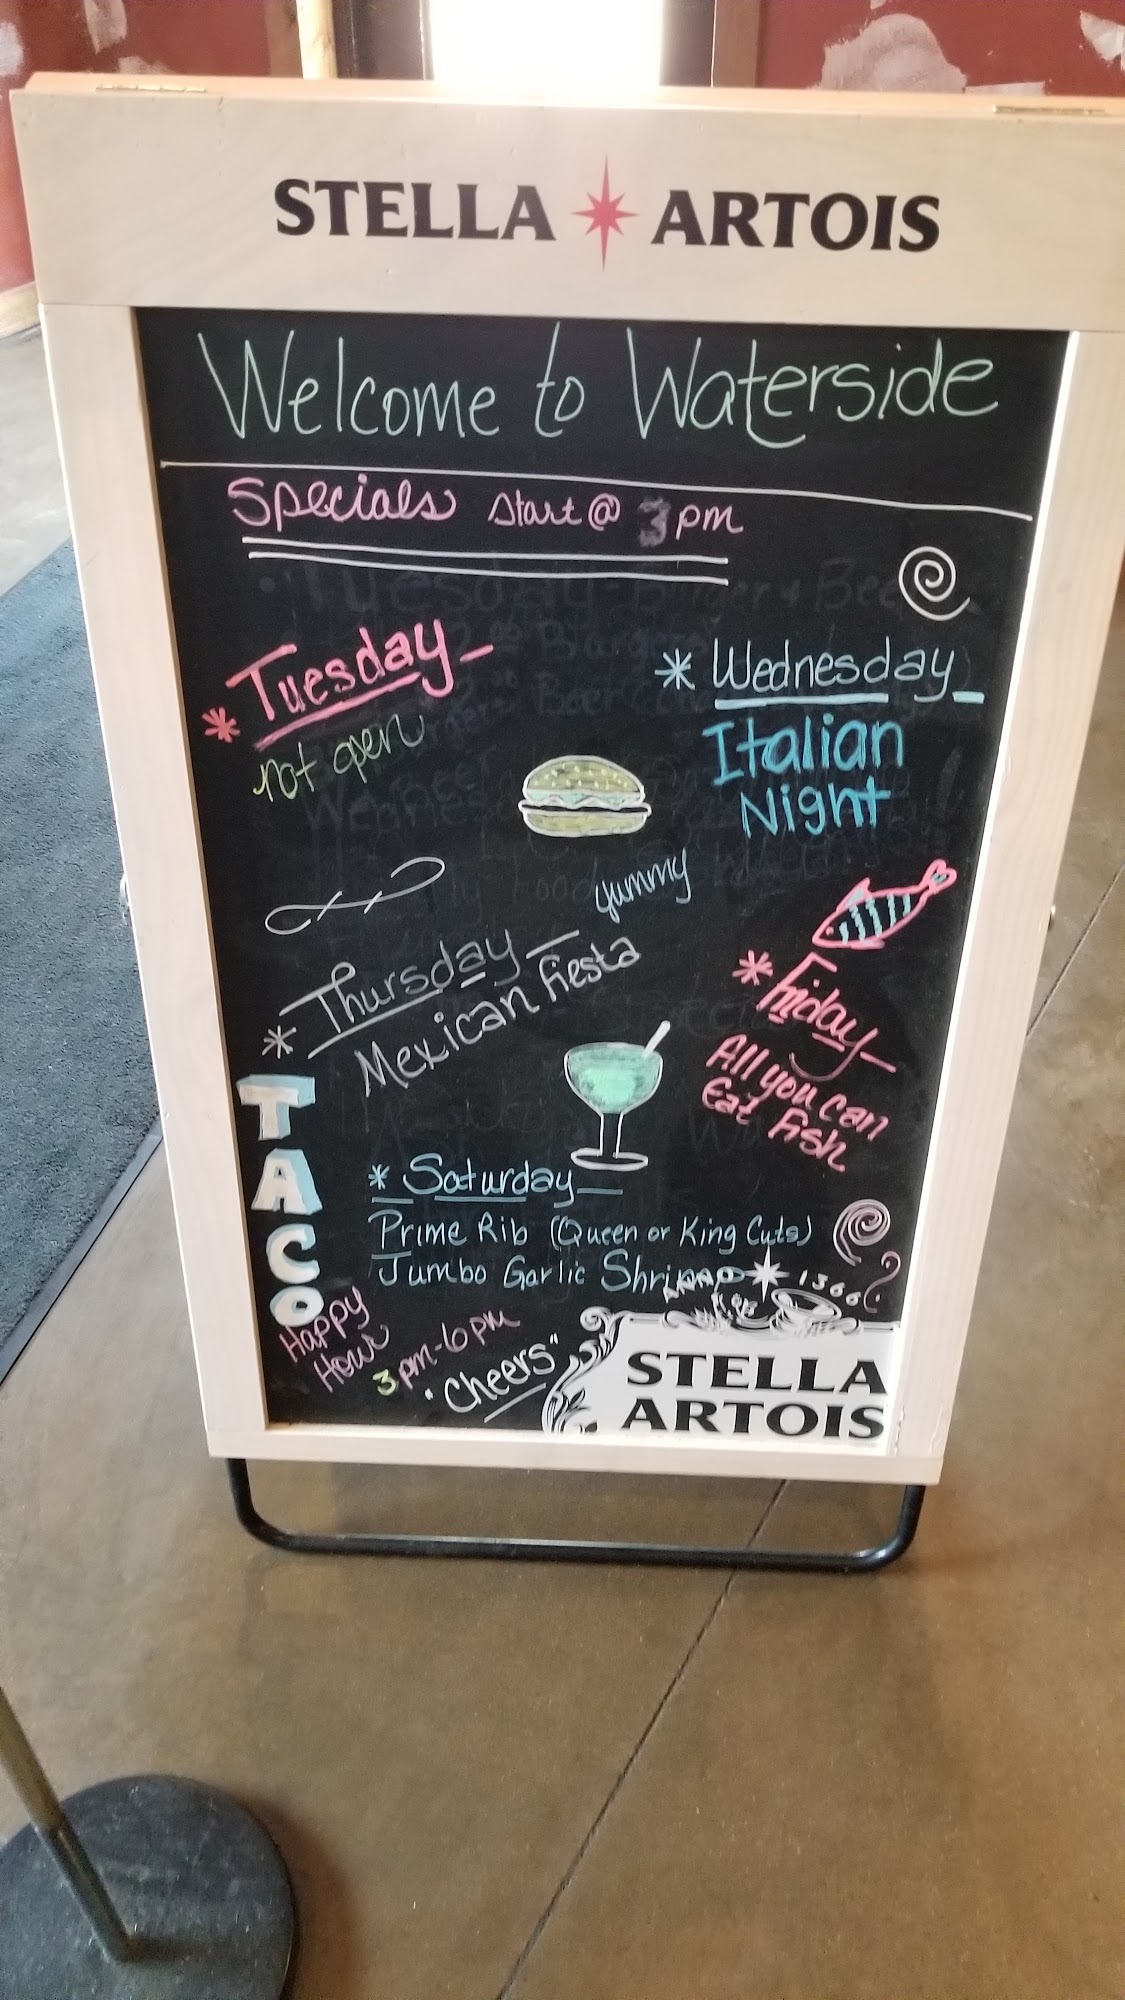 STELLA ARTOIS
Welcome to Waterside
Specials start @ 3 pm
* Tuesday -
not open
* Wednesday -
Italian
Night
yummy
* Thursday -
Mexican Fiesta
* Friday -
All you can
Eat Fish
TACO
* Saturday -
Prime Rib (Queen or King Cuts)
Jumbo Garlic Shrimp
Happy
Hour
3pm-6pm
"Cheers"
ANNO 1366
STELLA
ARTOIS